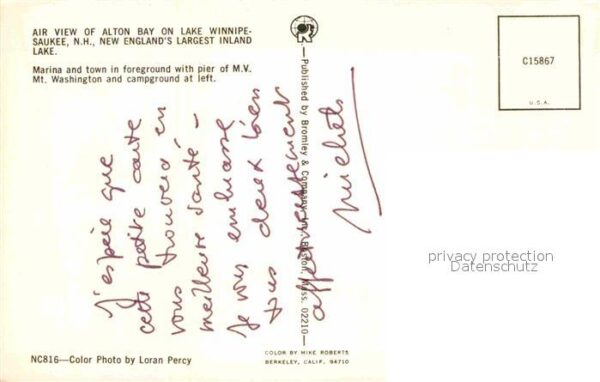 AIR VIEW OF ALTON BAY ON LAKE WINNIPE-
SAUKEE, N.H., NEW ENGLAND'S LARGEST INLAND
LAKE.
Marina and town in foreground with pier of M.V.
Mt. Washington and campground at left.
J'espère que
cette petite carte
vous trouvera en
meilleure santé -
Je vous embrasse
tous deux bien
affectueusement
Michel
NC816—Color Photo by Loran Percy
—Published by Bromley & Company, Inc., Boston, Mass. 02210—
COLOR BY MIKE ROBERTS
BERKELEY, CALIF. 94710
C15867
U.S.A.
privacy protection
Datenschutz